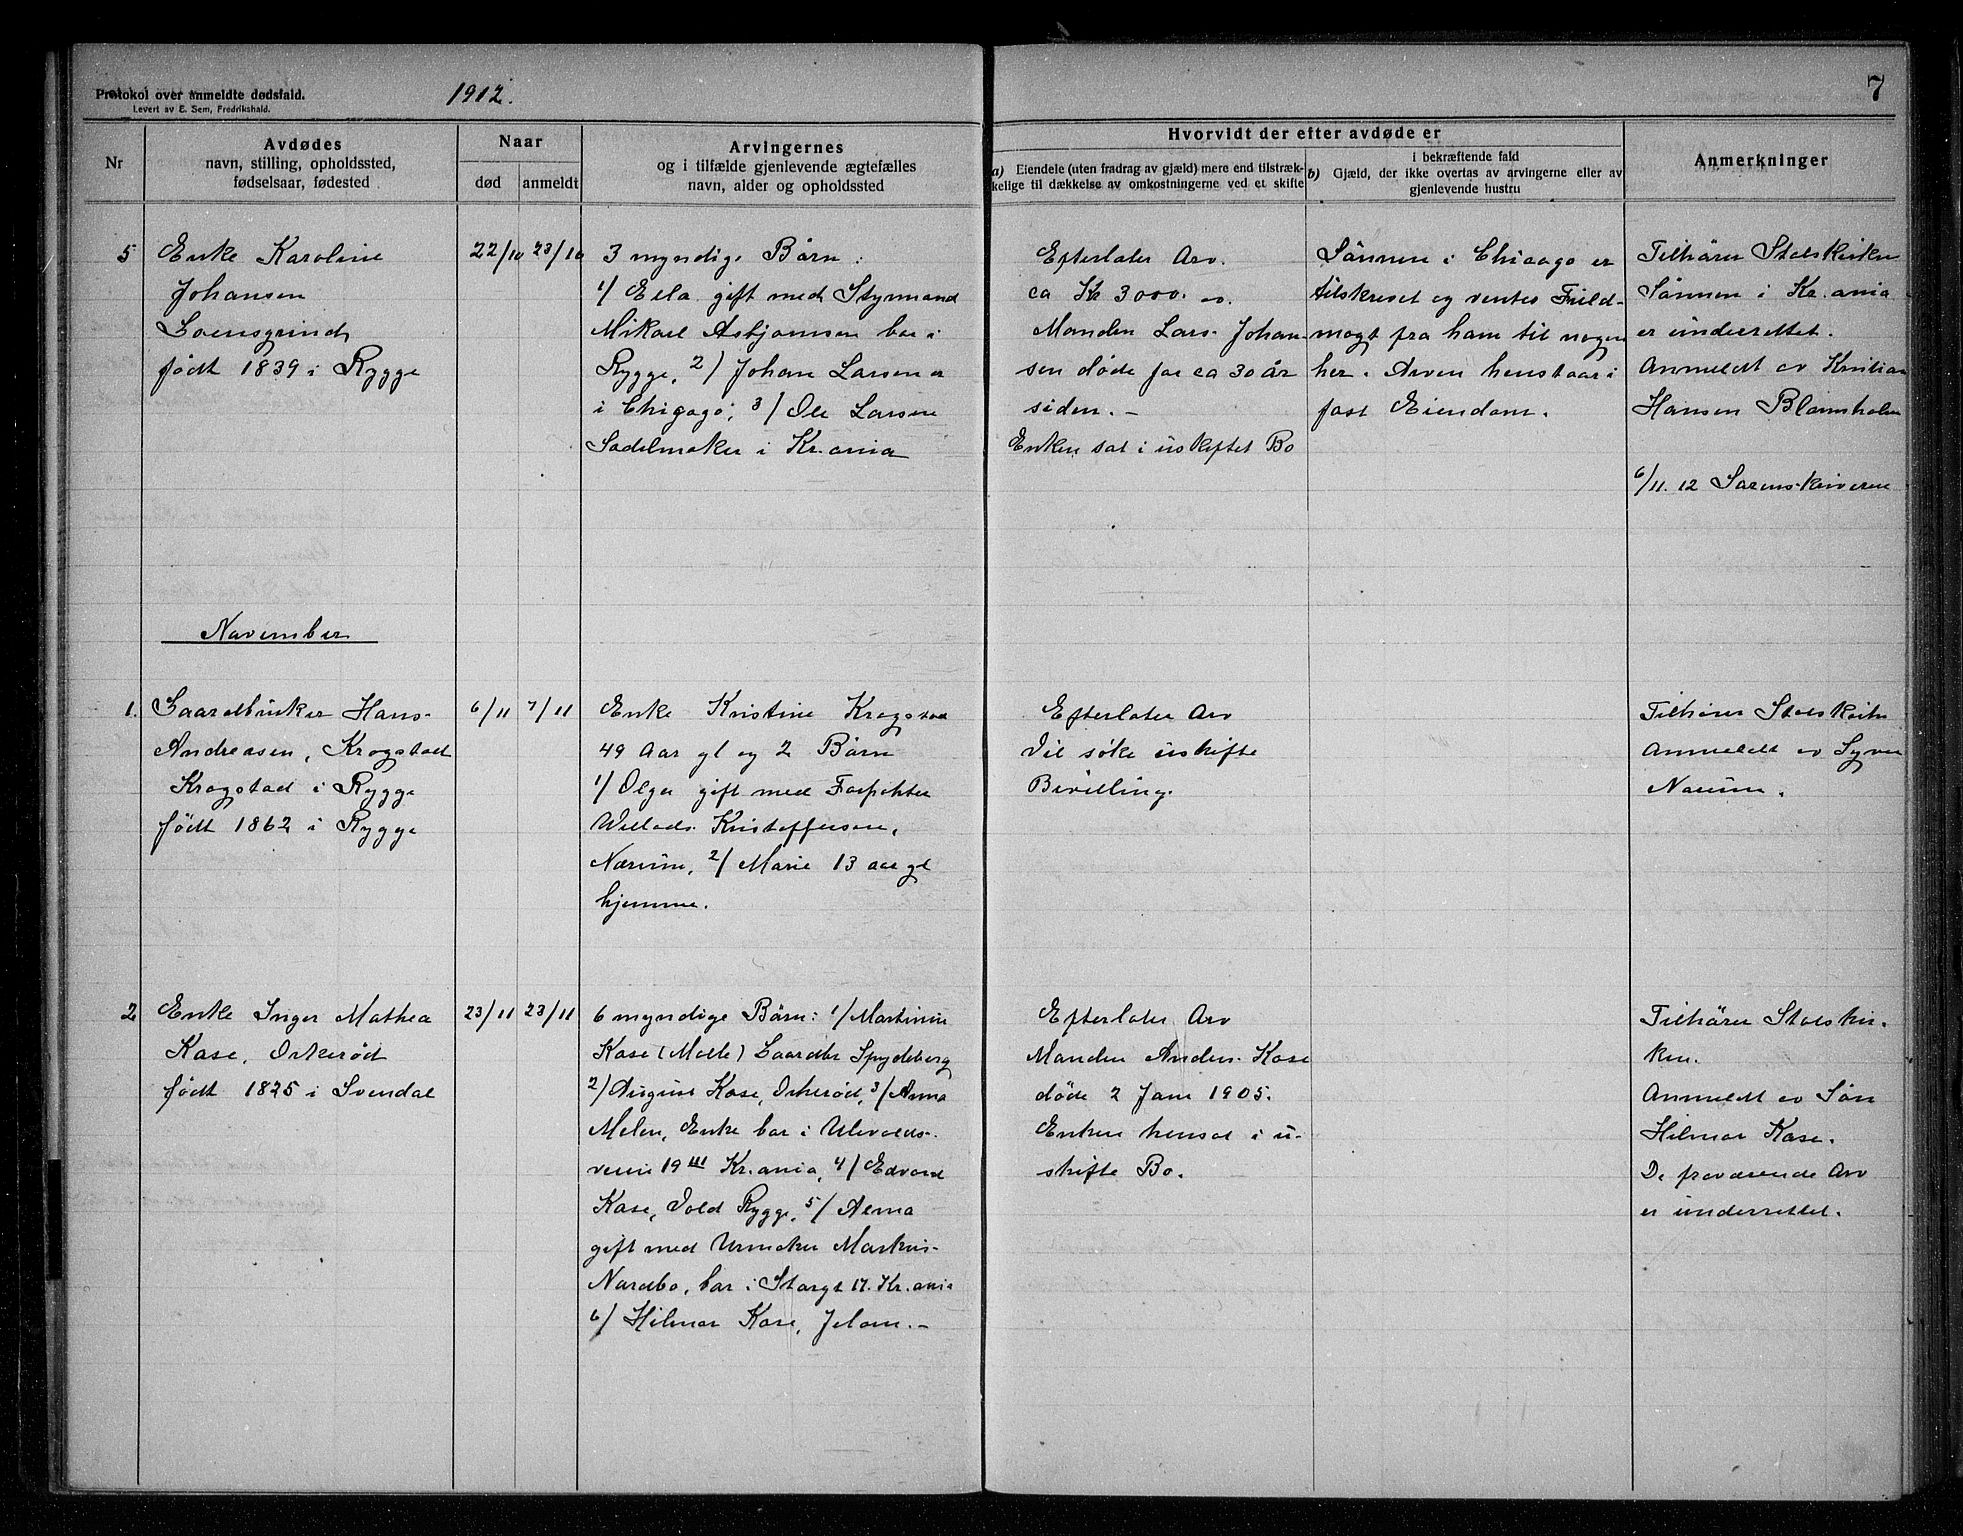 Protokol over anmeldte dødsfald.
Levert av E. Sem, Fredrikshald.
1912.
7
Nr
Avdødes
navn, stilling, opholdssted,
fødselsaar, fødested
Naar
død
anmeldt
Arvingernes
og i tilfælde gjenlevende ægtefælles
navn, alder og opholdssted
Hvorvidt der efter avdøde er
a) Eiendele (uten fradrag av gjæld) mere end tilstræk-
kelige til dækkelse av omkostningerne ved et skifte
i bekræftende fald
b) Gjæld, der ikke overtas av arvingerne eller av
gjenlevende hustru
Anmerkninger
5
Enke Karoline
Johansen
født 1839 i Rygge
22/10
23/10
3 myndige Børn:
1/ Ella gift med Styrmand
Mikael Asbjørnsen bor i
Rygge, 2/ Johan Larsen er
i Chigago, 3/ Ole Larsen
Sadelmaker i Kr.ania
Efterlater Arv.
ca Kr 3000.
Manden Lars Johan-
sen døde for ca 30 år
siden. -
Enken sat i uskiftet Bo
Sønnen i Chicago er
tilskrevet og ventes Fuld-
magt fra ham til nogen
her. Arven henstaar i
fast Eiendom.
Tilhører Statskirken
Sønnen i Kr.ania
er underrettet.
Anmeldt av Kristian
Hansen Blomholm
6/11.12 Sorenskriveren
November
1.
Gaardbruker Hans
Andreasen, Krogstad
Krogstad i Rygge
født 1862 i Rygge
6/11
7/11
Enke Kristine Krogstad
49 Aar gl og 2 Børn
1/ Olga gift med Forpakter
Kristoffersen,
Nærum, 2/ Marie 13 aar gl
hjemme.
Efterlater Arv
Vil søke uskifte
Bevilling.
Tilhører Statskirken
Anmeldt av Syver
Nærum.
2
Enke Inger Mathea
Kase, Orkerød
født 1825 i Svendal
23/11
23/11
6 myndige Børn: 1/ Martinus
Kase (Molle) Gaardbr Spydeberg
2/ August Kase, Orkerød, 3/ Anna
Melen, Enke bor i Ulevolds-
veien 19 III Kr.ania, 4/ Edvard
Kase, Vold Rygge, 5/ Alma
gift med Urmaker Markus
Nordbo, bor i Storgt 17. Kr.ania
6/ Hilmar Kase, Jeløen. -
Efterlater Arv
Manden Anders Kase
døde 2 Jan 1905.
Enken hensat i u-
skifte Bo.
Tilhører Statskir-
ken.
Anmeldt av Søn
Hilmar Kase.
De fraværende Arv
er underrettet.